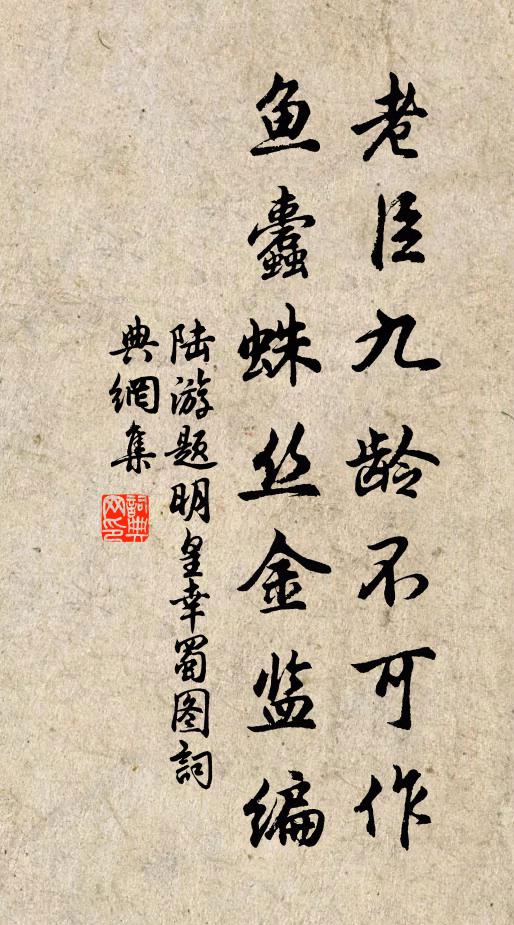 老臣九龄不可作
鱼蠹蛛丝金监编
陆游题明皇幸蜀图词
典網集
詞典网印